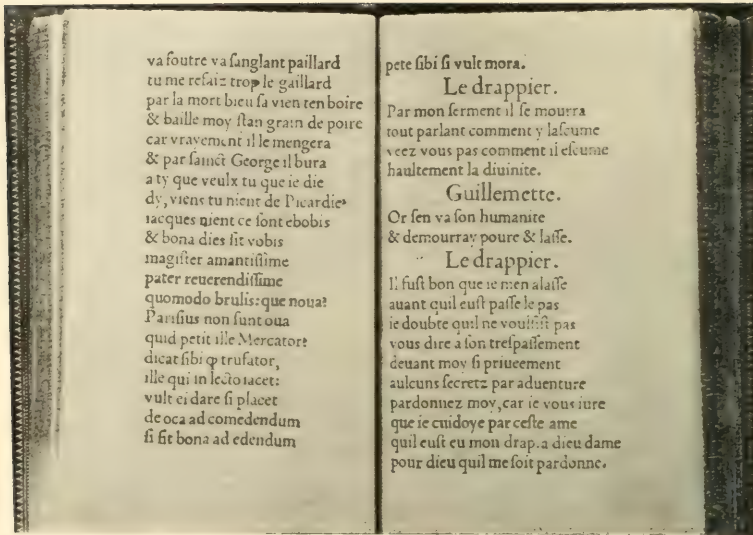 va foutre va ſanglant paillard
tu me refaiz trop le gaillard
par la mort bieu ſa vien ten boire
& baille moy ſtan grain de poire
car vrayement il le mengera
& par ſainct George il bura
a ty que veulx tu que ie die
dy, viens tu nient de Picardie?
iacques nient ce ſont ebobis
& bona dies ſit vobis
magiſter amantiſſime
pater reuerendiſſime
quomodo brulis: que noua?
Pariſius non ſunt oua
quid petit ille Mercator?
dicat ſibi ꝙ trufator,
ille qui in lecto iacet:
vult ei dare ſi placet
de oca ad comedendum
ſi ſit bona ad edendum
pete ſibi ſi vult mora.
Le drappier.
Par mon ſerment il ſe mourra
tout parlant comment y laſcume
veez vous pas comment il eſcume
haultement la diuinite.
Guillemette.
Or ſen va ſon humanite
& demourray poure & laſſe.
Le drappier.
Il fuſt bon que ie men alaſſe
auant quil euſt paſſe le pas
ie doubte quil ne voulſiſt pas
vous dire a ſon treſpaſſement
deuant moy ſi priueement
aulcuns ſecretz par aduenture
pardonnez moy, car ie vous iure
que ie cuidoye par ceſte ame
quil euſt eu mon drap. a dieu dame
pour dieu quil me ſoit pardonne.